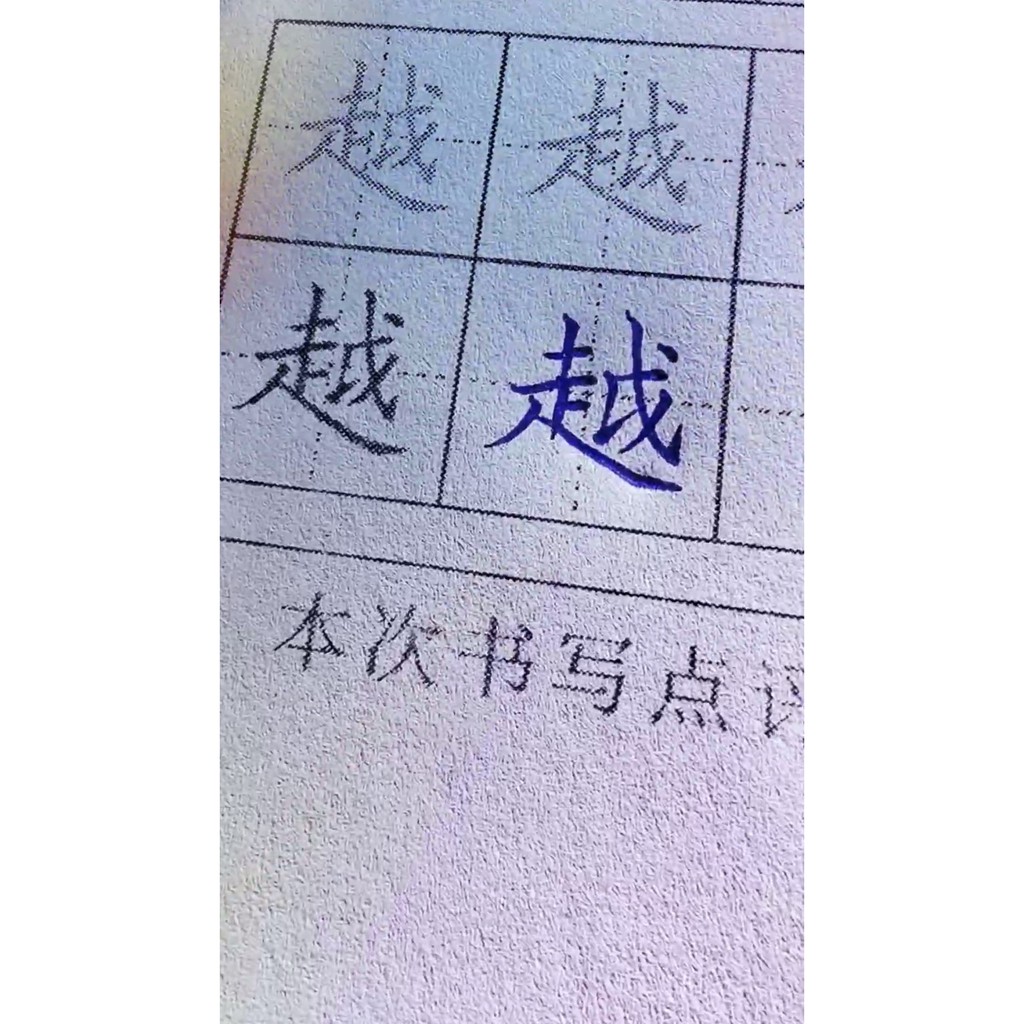 越越
越越
本次书写点评